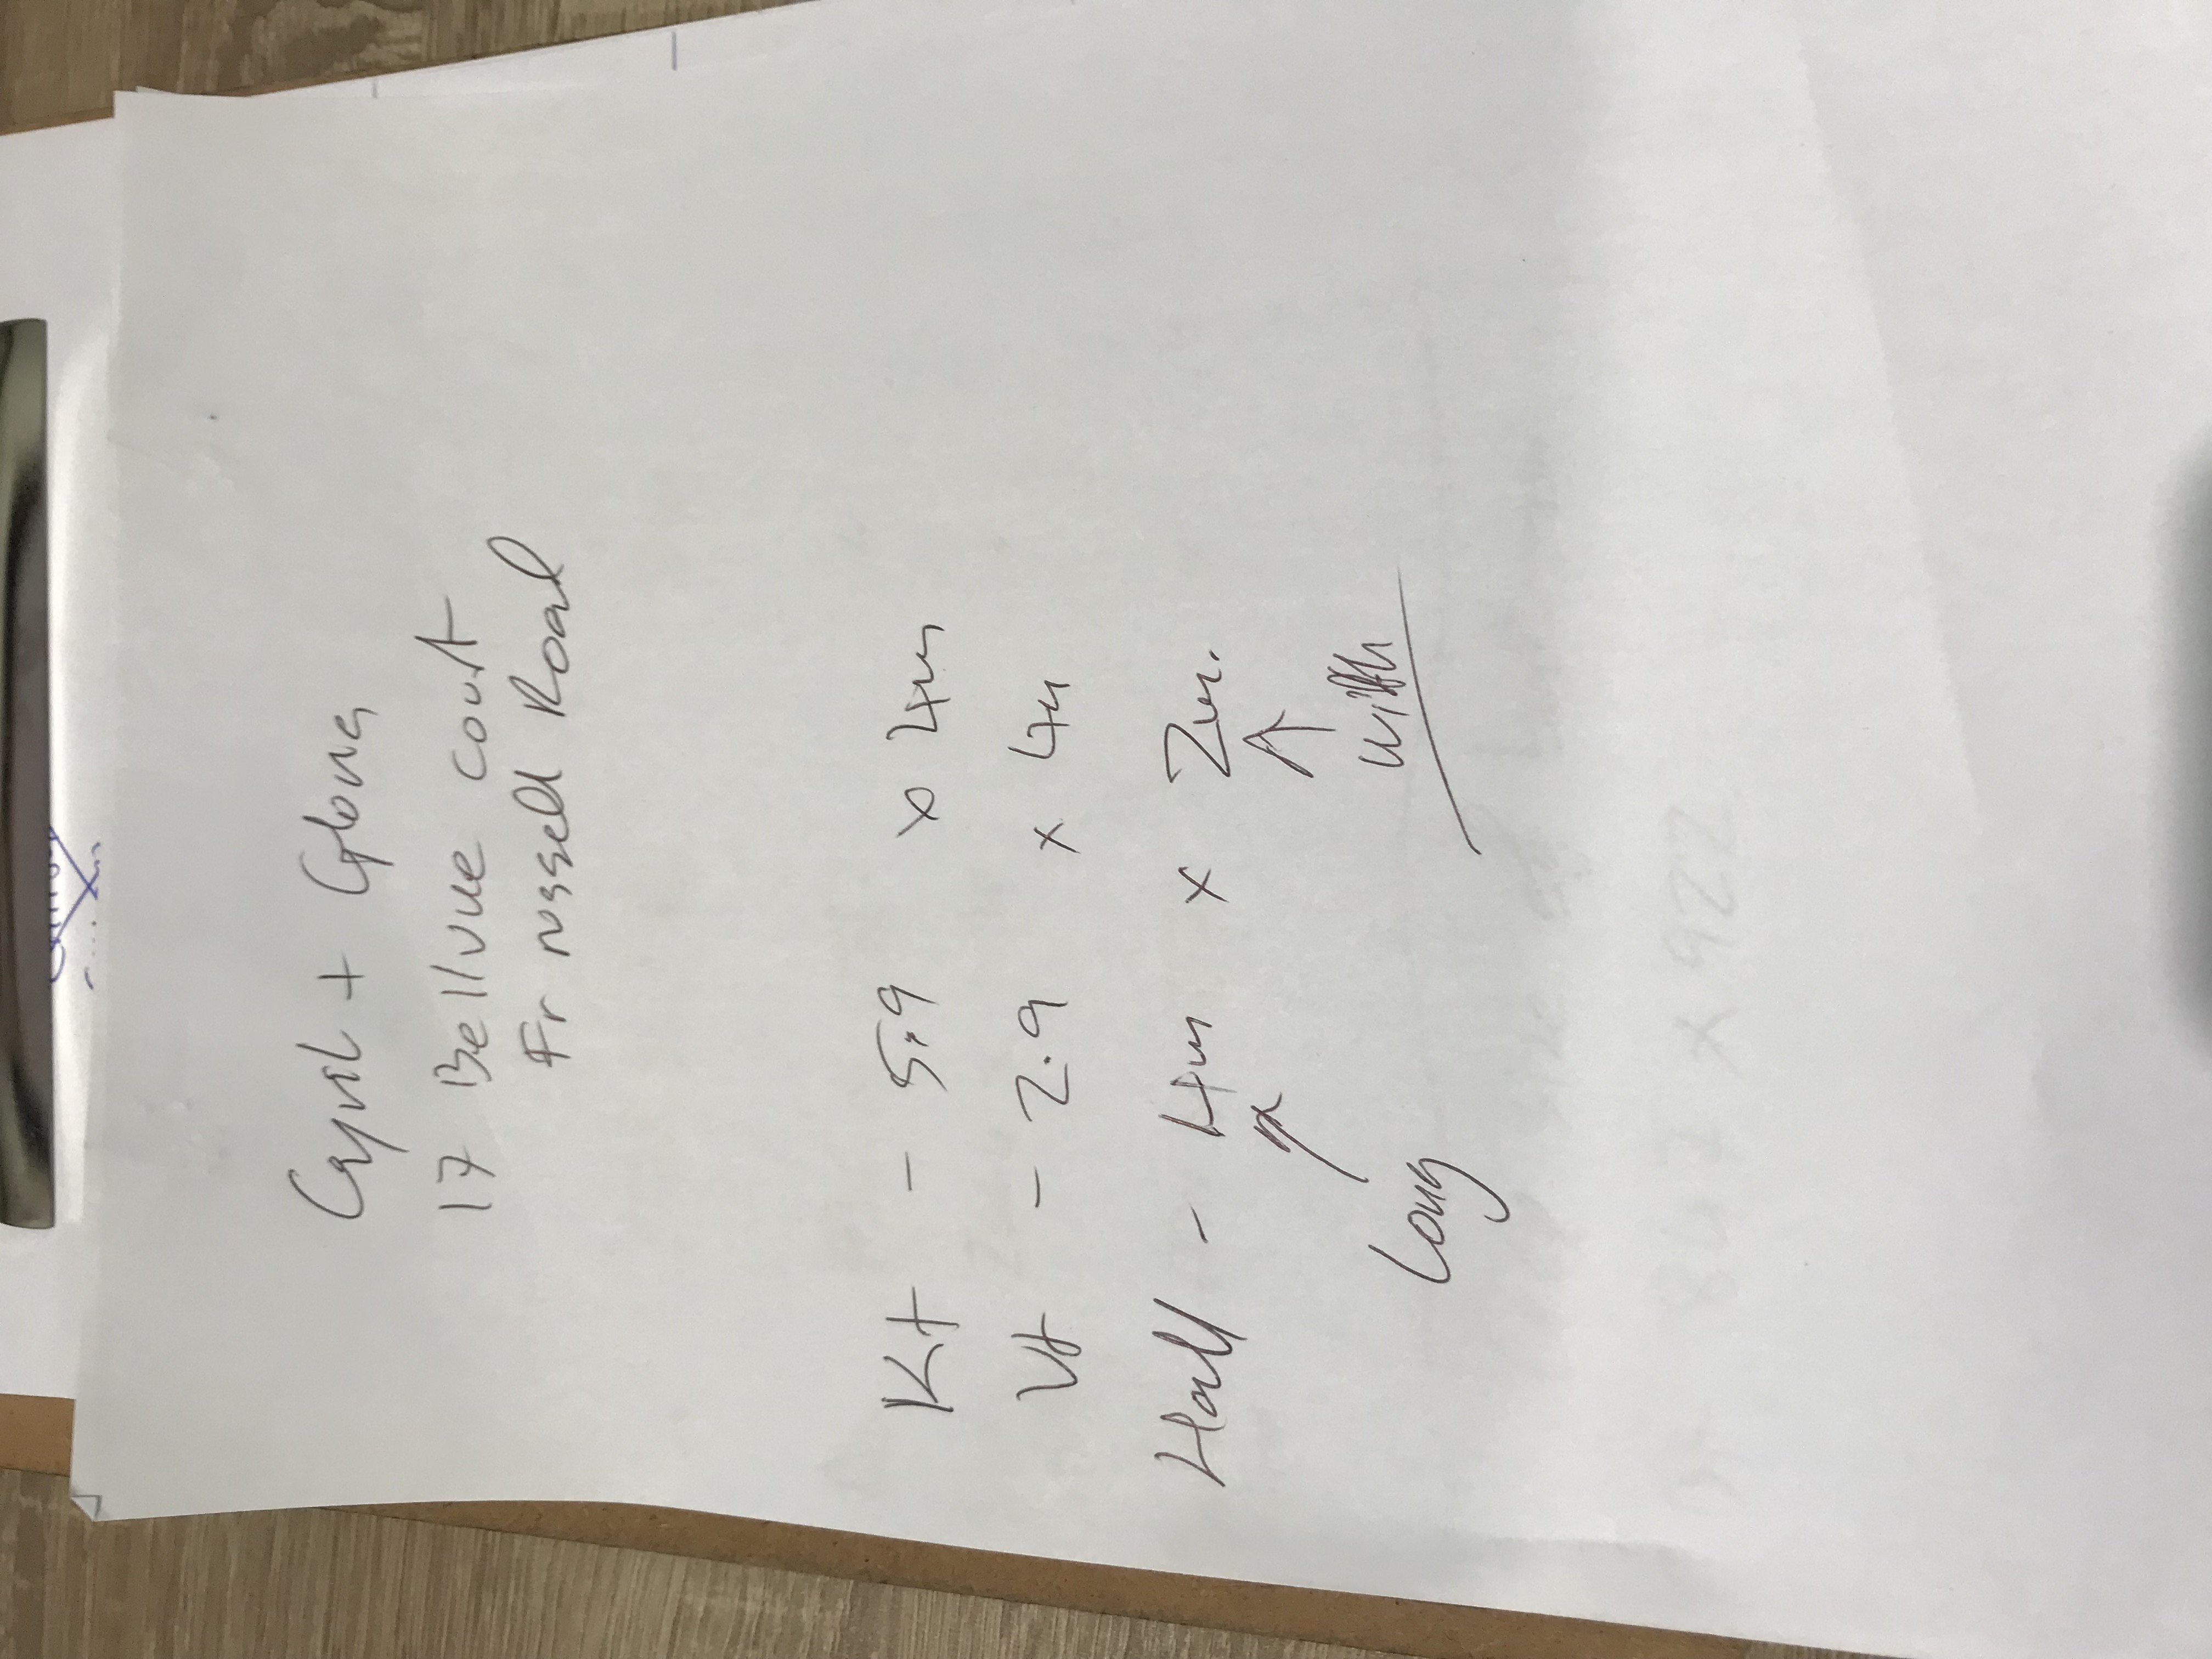 Cyril + Glona
17 Bellvue court
Fr russell Road
Kt - 5.9 x 4m
Ut - 2.9 x 4m
Hall - 4m x 2m.
Long with